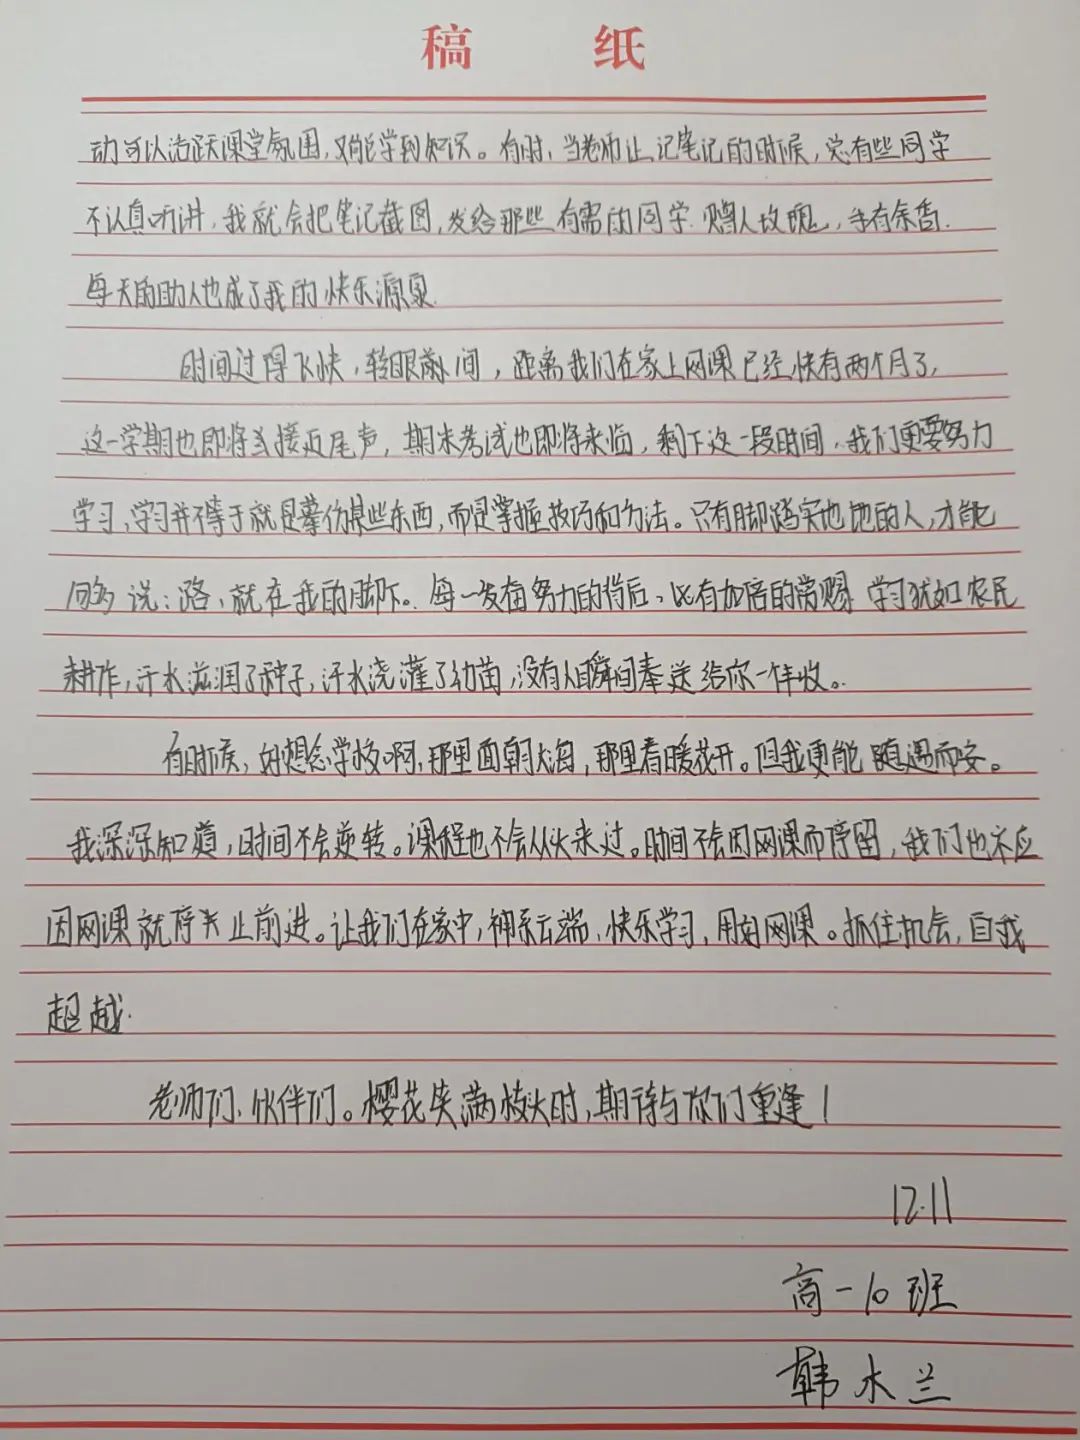 稿 纸
动可以活跃课堂氛围，又能学到知识。有时，当老师让记笔记的时候，总有些同学
不认真听讲，我就会把笔记截图，发给那些有需的同学.赠人玫瑰，手有余香.
每天的助人也成了我的快乐源泉.
时间过得飞快，转眼间，距离我们在家上网课已经快有两个月了，
这一学期也即将接近尾声，期末考试也即将来临，剩下这一段时间，我们更要努力
学习，学习并不等于就是摹仿某些东西，而是掌握技巧和方法。只有脚踏实地的人，才能
够说：路，就在我的脚下。每一发奋努力的背后，必有加倍的赏赐.学习犹如农民
耕作，汗水滋润了种子，汗水浇灌了幼苗，没有人瞬间奉送给你一年收。
有时候，好想念学校啊，那里面朝大海，那里春暖花开。但我更能随遇而安。
我深深知道，时间不会逆转。课程也不会从头来过。时间不会因网课而停留，我们也不应
因网课就停止前进。让我们在家中，神系云端，快乐学习，用好网课。抓住机会，自我
超越.
老师们、伙伴们。樱花笑满枝头时，期待与你们重逢！
12.11
高一10班
韩木兰